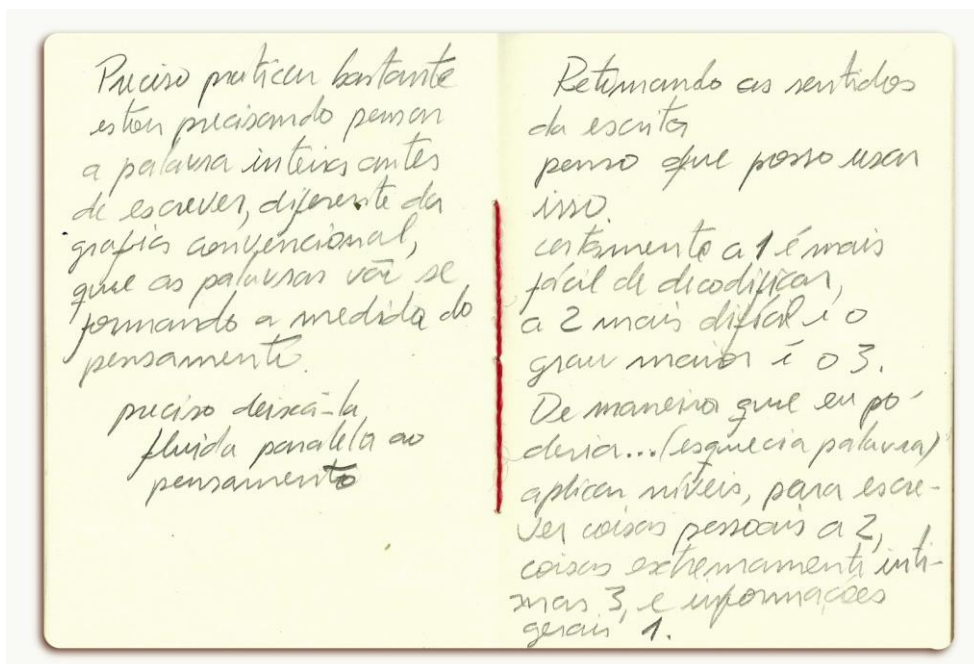 Preciso praticar bastante
estou precisando pensar
a palavra inteira antes
de escrever, diferente da
grafia convencional,
que as palavras vão se
formando a medida do
pensamento.
preciso deixá-la,
fluida paralela ao
pensamento
Retomando os sentidos
da escrita
penso que posso usar
isso.
certamente a 1 é mais
fácil de decodificar,
a 2 mais difícil e o
grau maior é o 3.
De maneira que eu po-
deria... (esqueci a palavra)
aplicar níveis, para escre-
ver coisas pessoais a 2,
coisas extremamente ínti-
mas 3, e informações
gerais 1.